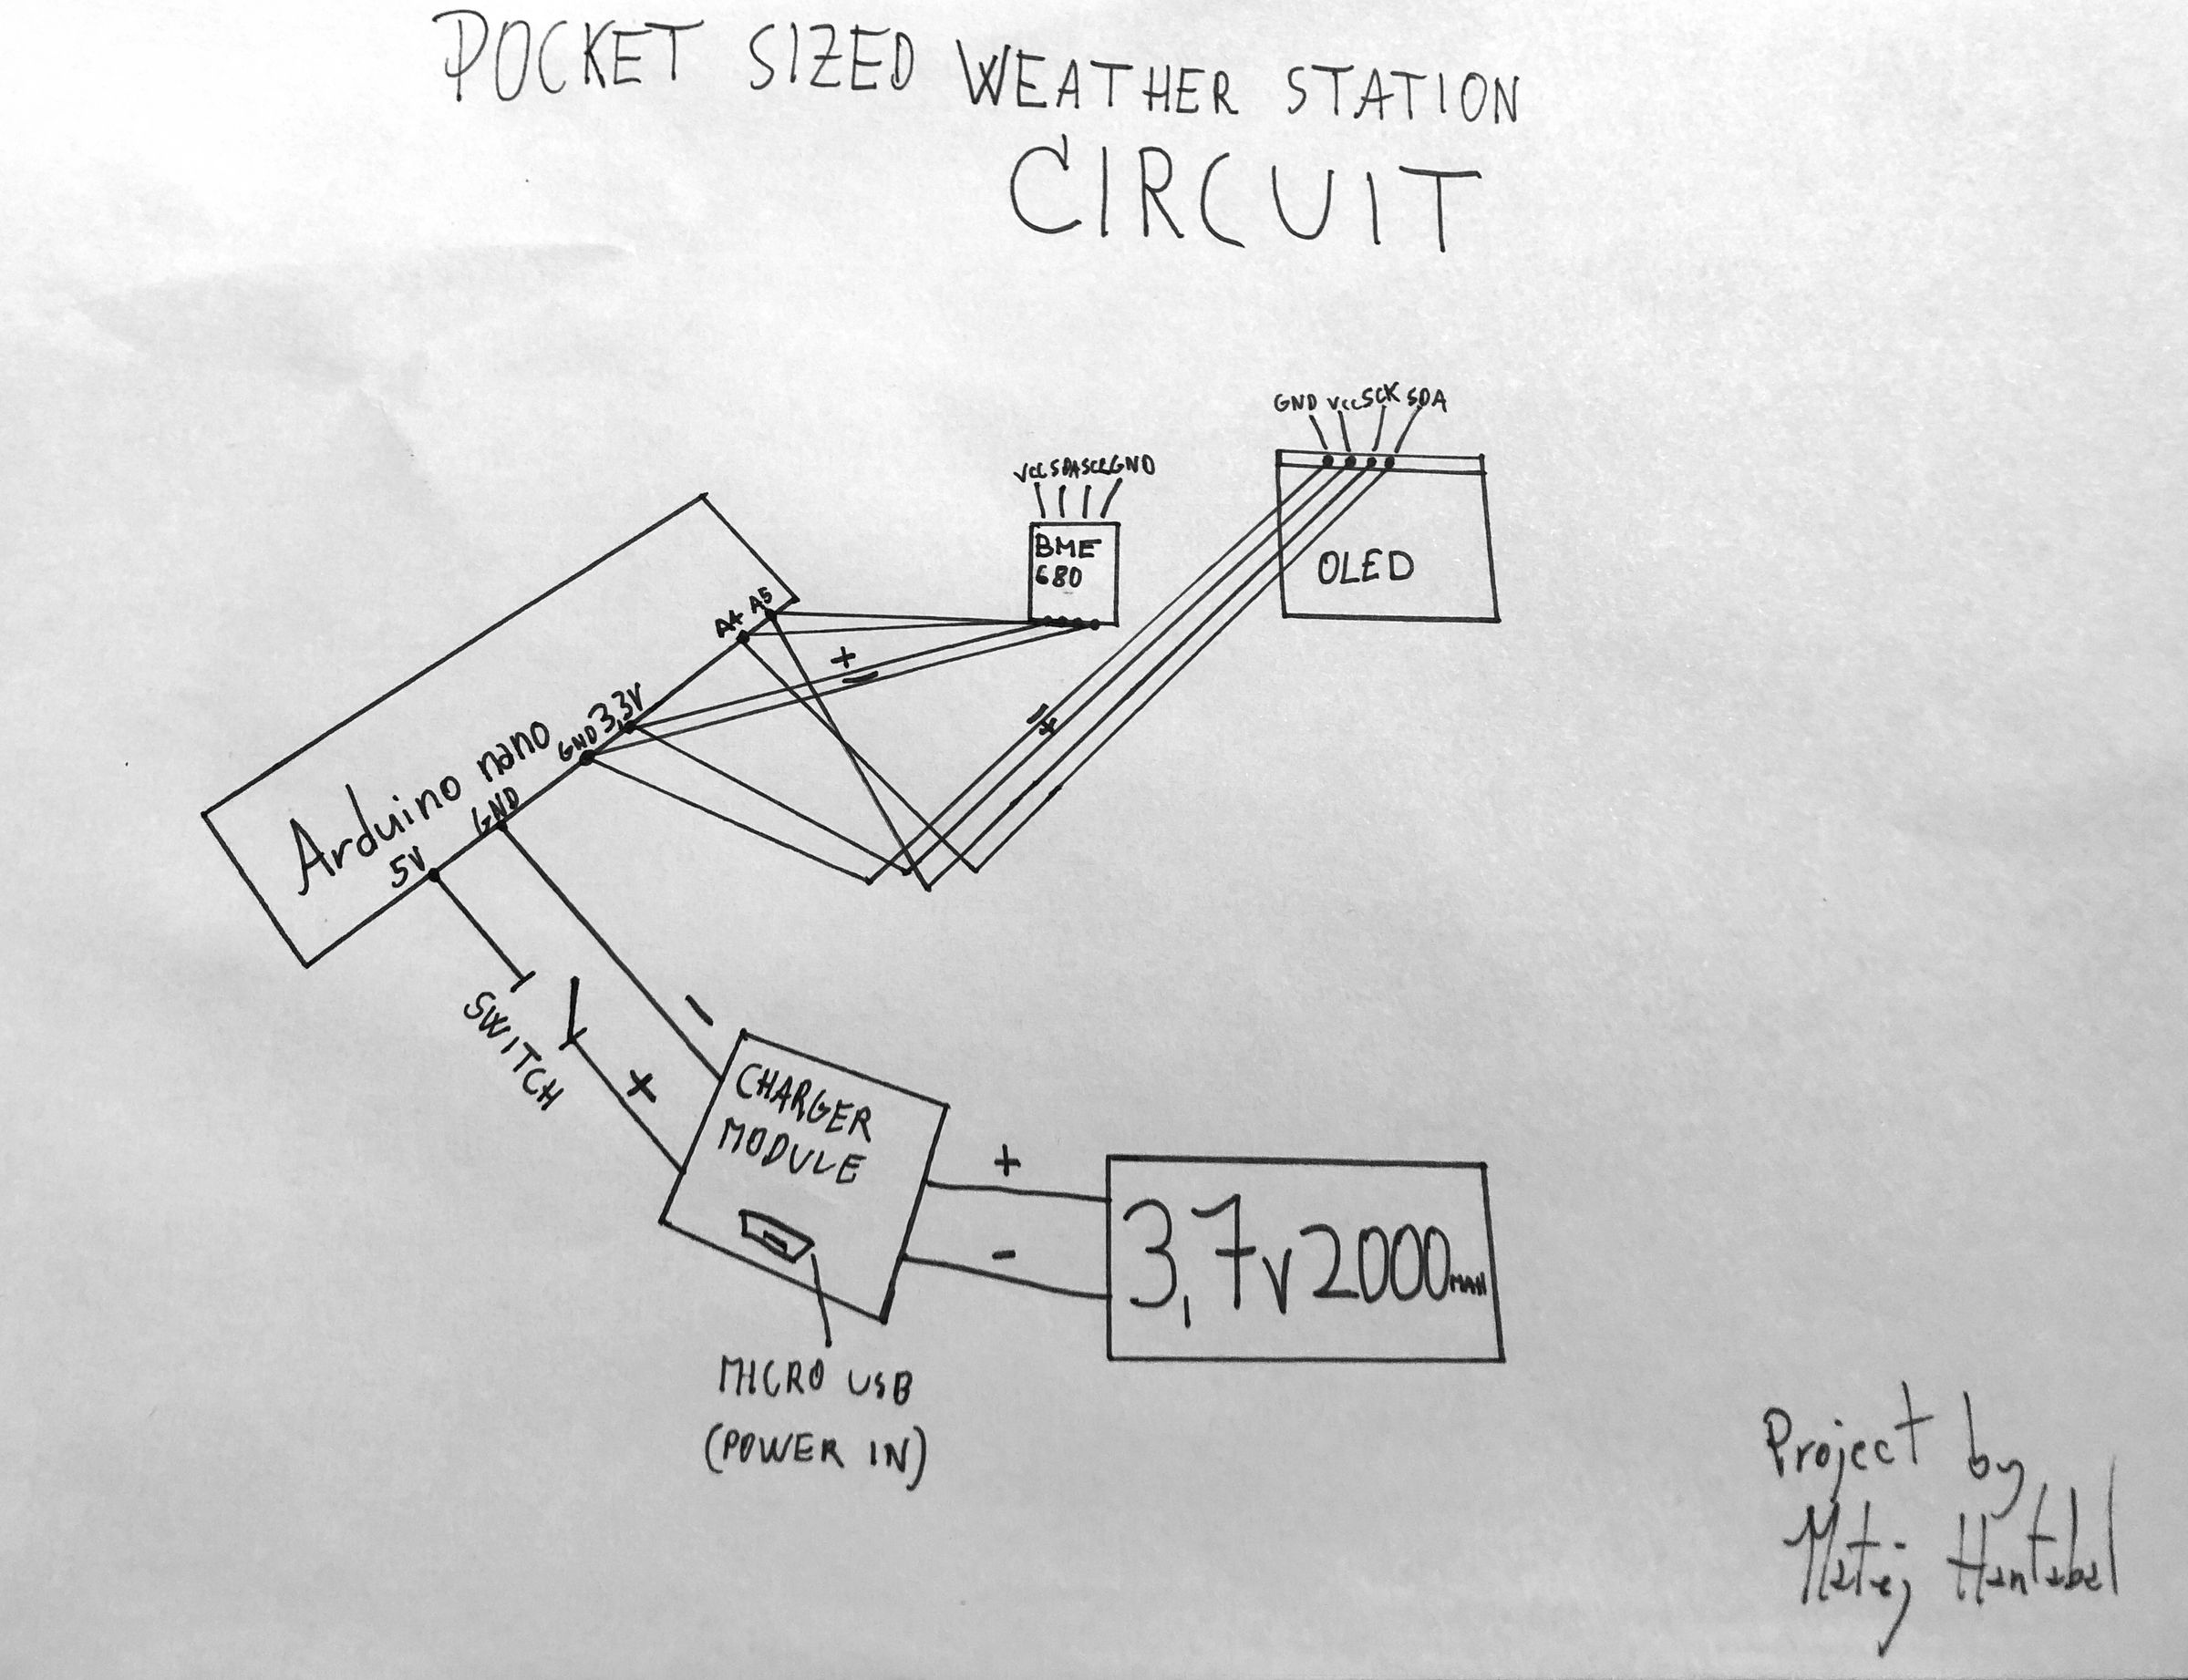 POCKET SIZED WEATHER STATION
CIRCUIT
GND VCC SCK SDA
VCC SDA SCL GND
BME
680
OLED
A4 A5
+
-
-
+
GND 3,3V
Arduino nano
GND
5V
SWITCH
-
+
CHARGER
MODULE
+
-
3,7V 2000MAH
MICRO USB
(POWER IN)
Project by
Matej Hantabal